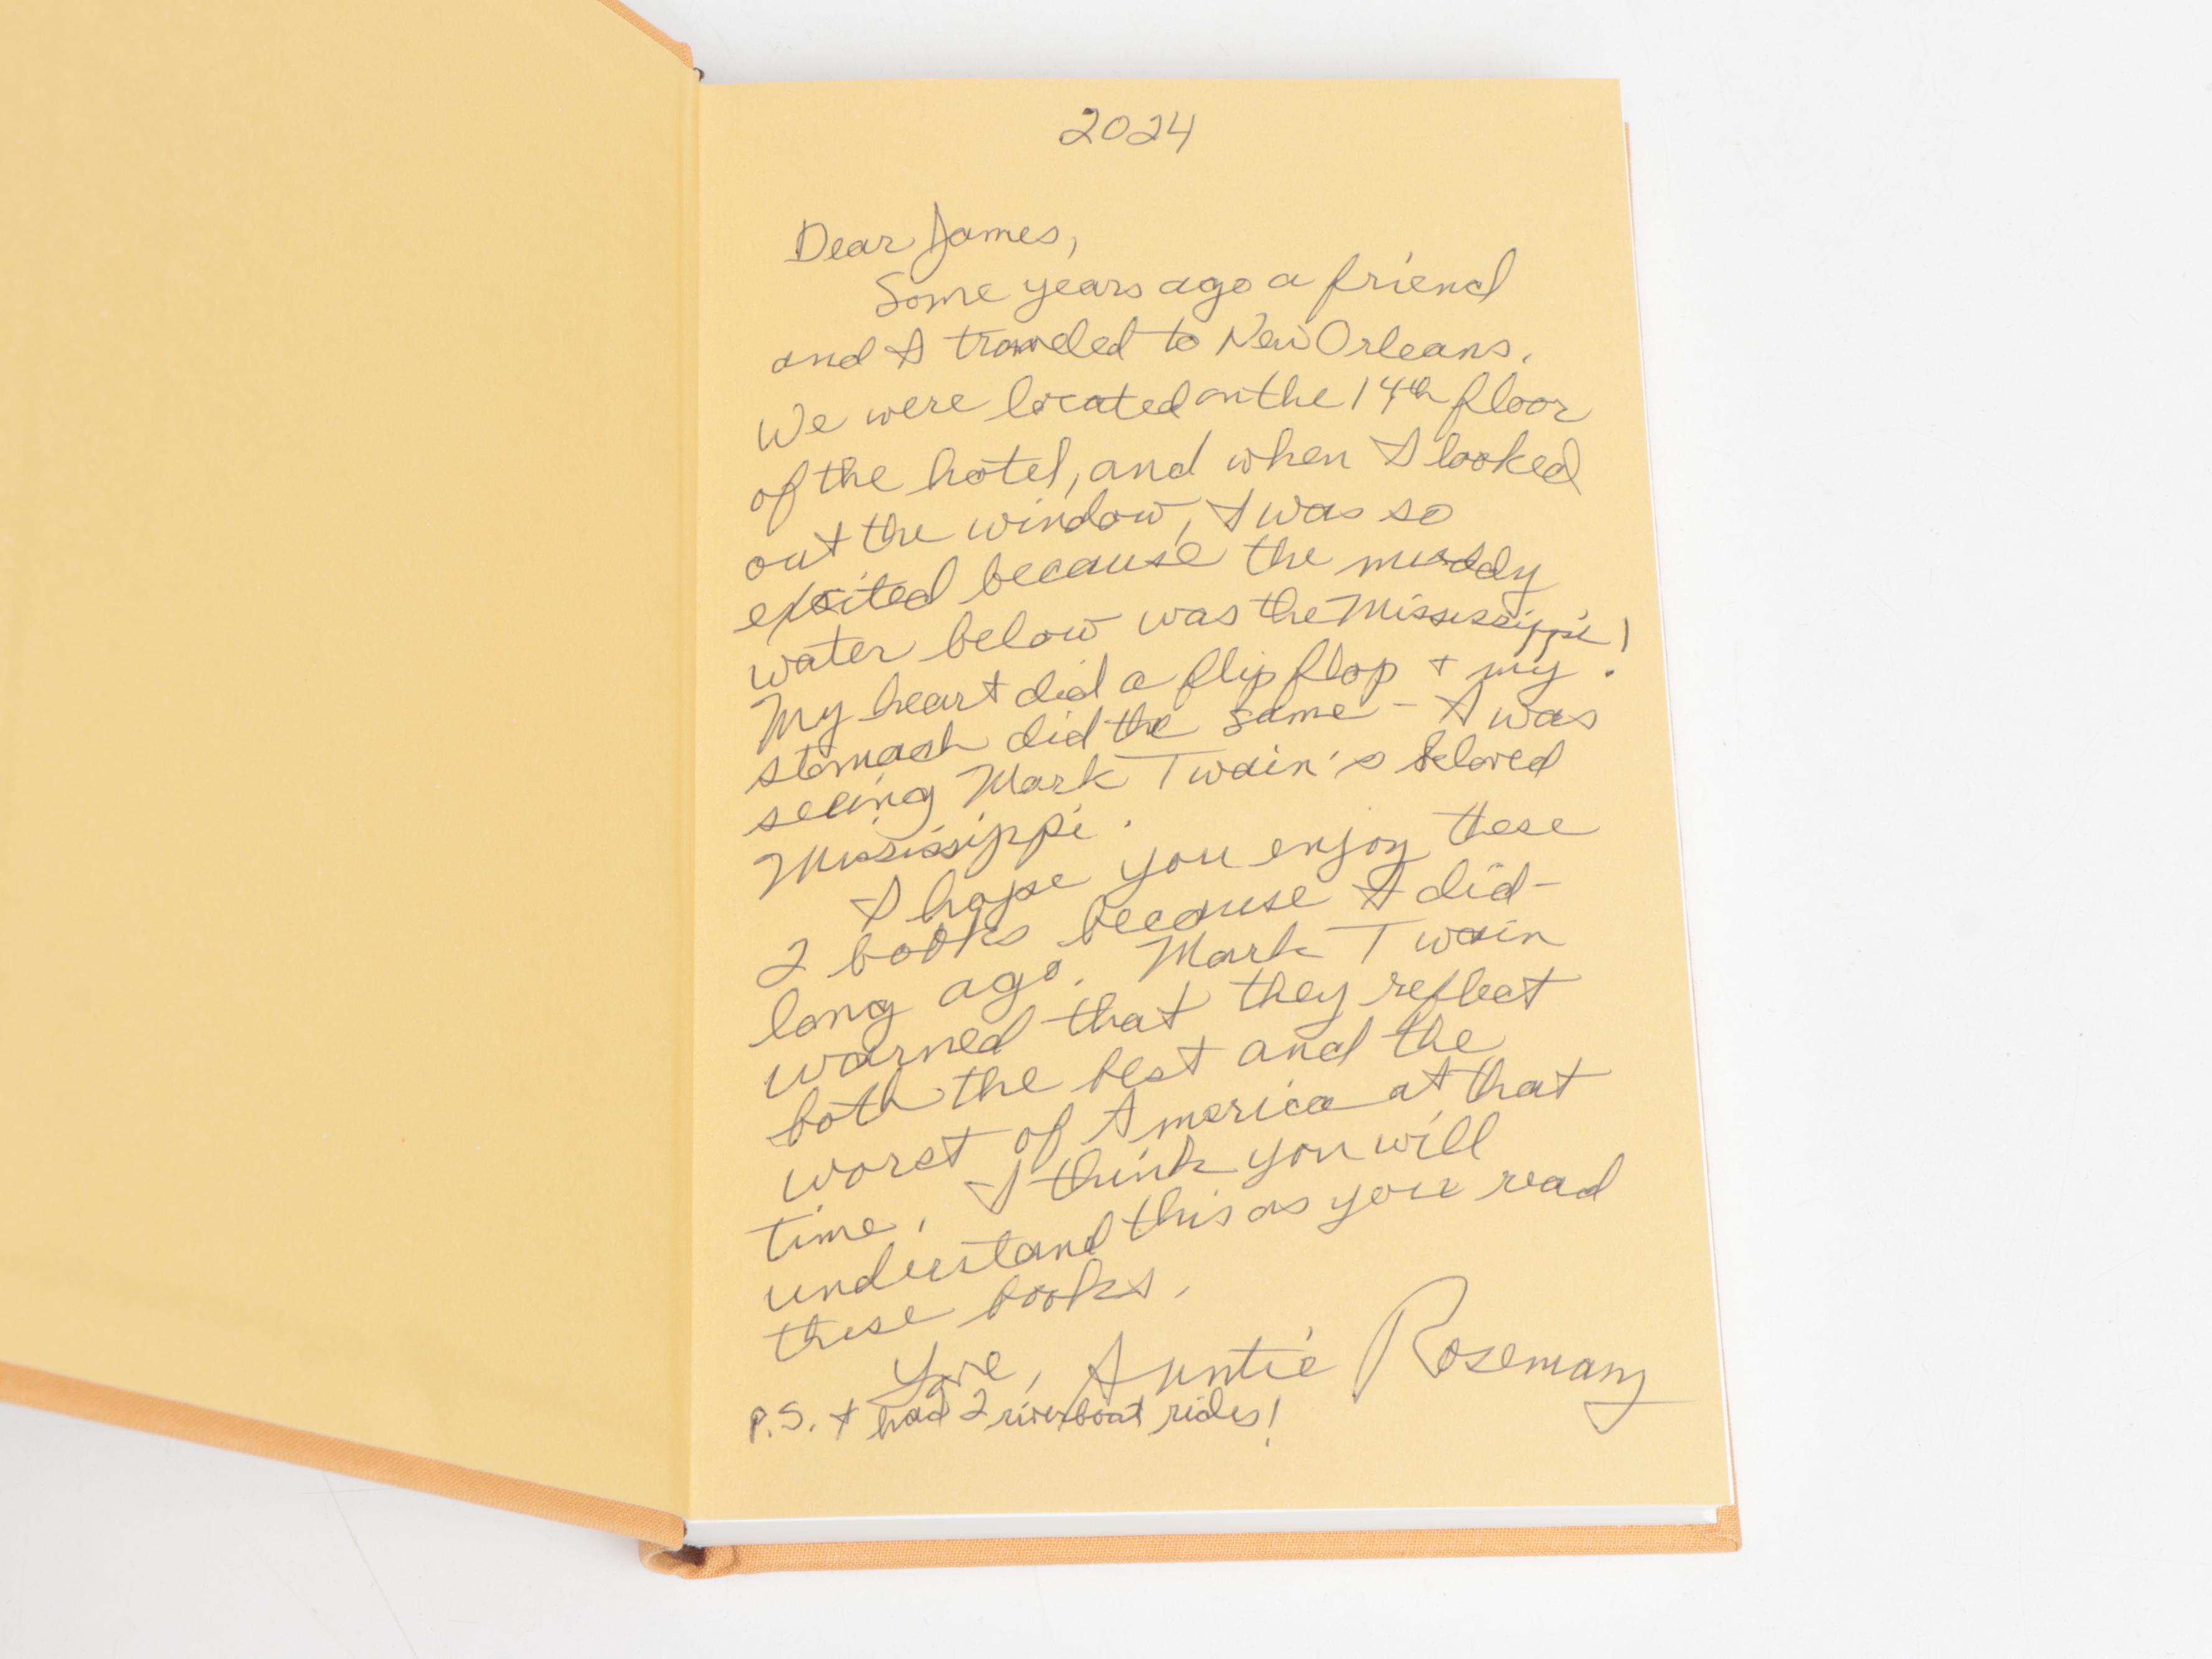 2024
Dear James,
Some years ago a friend
and I traveled to New Orleans.
We were located on the 14th floor
of the hotel, and when I looked
out the window, I was so
excited because the muddy
water below was the Mississippi!
My heart did a flip flop + my
stomach did the same - I was
seeing Mark Twain's beloved
Mississippi.
I hope you enjoy these
2 books because I did -
long ago. Mark Twain
warned that they reflect
both the best and the
worst of America at that
time. I think you will
understand this as you read
these books.
Love, Auntie Rosemary
P.S. I had 2 riverboat rides!